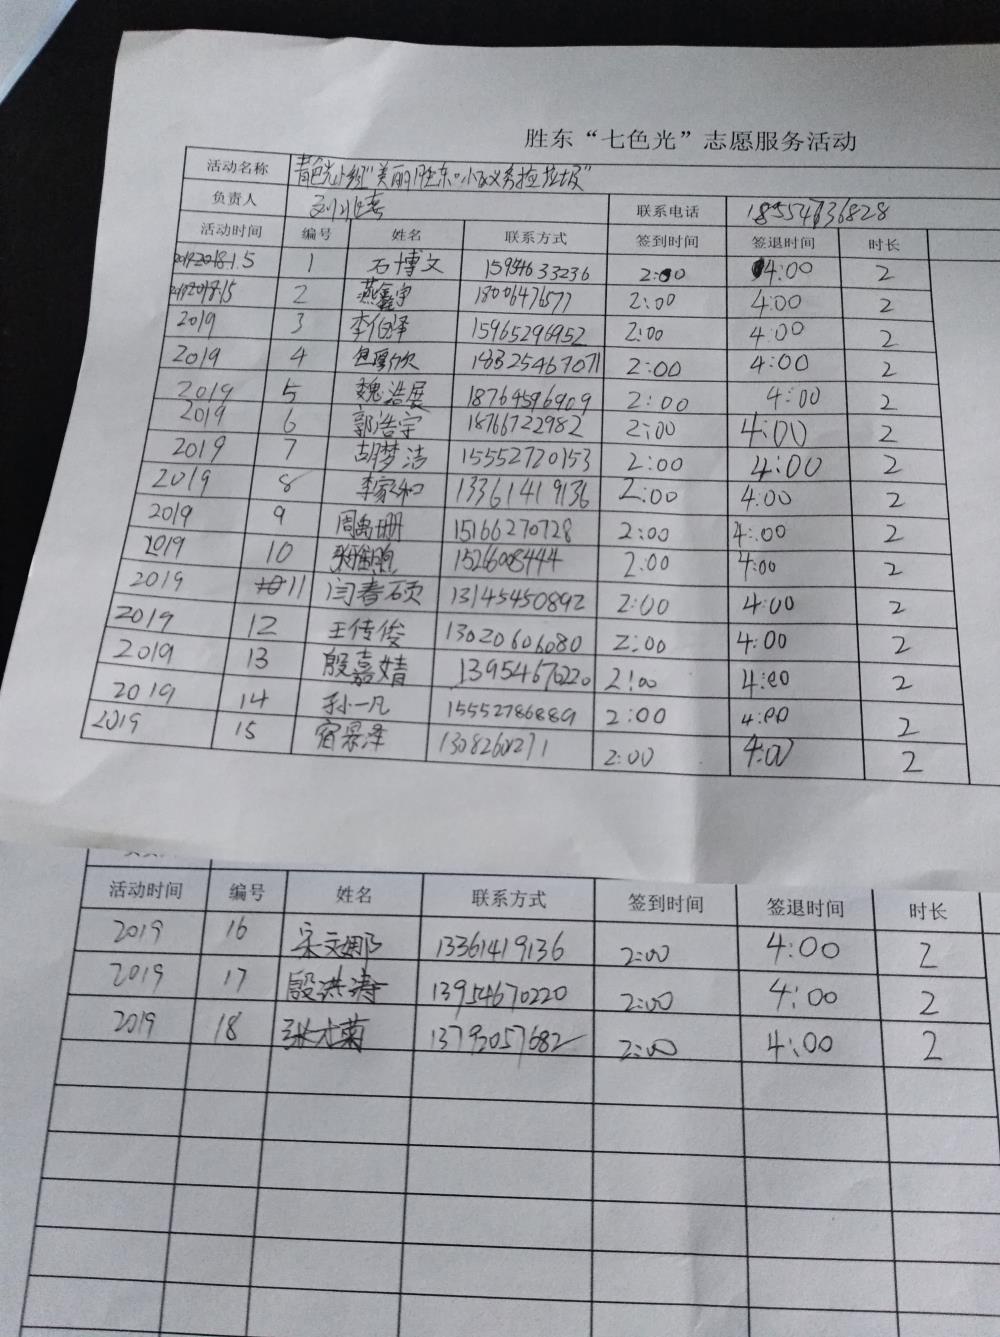 胜东“七色光”志愿服务活动
活动名称 青色光小组“美丽胜东·小区义务捡垃圾”
负责人 联系电话 18554636828
活动时间 编号 姓名 联系方式 签到时间 签退时间 时长
1 石博文 15954633236 2:00 4:00 2
2 燕鑫宇 18006476577 2:00 4:00 2
2019 3 李伯泽 15965296952 2:00 4:00 2
2019 4 18325467071 2:00 4:00 2
2019 5 魏浩展 18764596909 2:00 4:00 2
2019 6 郭浩宇 18766722982 2:00 4:00 2
2019 7 胡梦洁 15552720153 2:00 4:00 2
2019 8 李家和 13361419136 2:00 4:00 2
2019 9 周禹珊 15166270728 2:00 4:00 2
2019 10 1526608444 2:00 4:00 2
2019 11 闫春硕 13145450892 2:00 4:00 2
2019 12 王传俊 13020606080 2:00 4:00 2
2019 13 殷嘉婧 13954670220 2:00 4:00 2
2019 14 孙一凡 15552786889 2:00 4:00 2
2019 15 宿景泽 1308260271 2:00 4:00 2
活动时间 编号 姓名 联系方式 签到时间 签退时间 时长
2019 16 宋文娜 13361419136 2:00 4:00 2
2019 17 殷洪涛 13954670220 2:00 4:00 2
2019 18 张大菊 13793057682 2:00 4:00 2